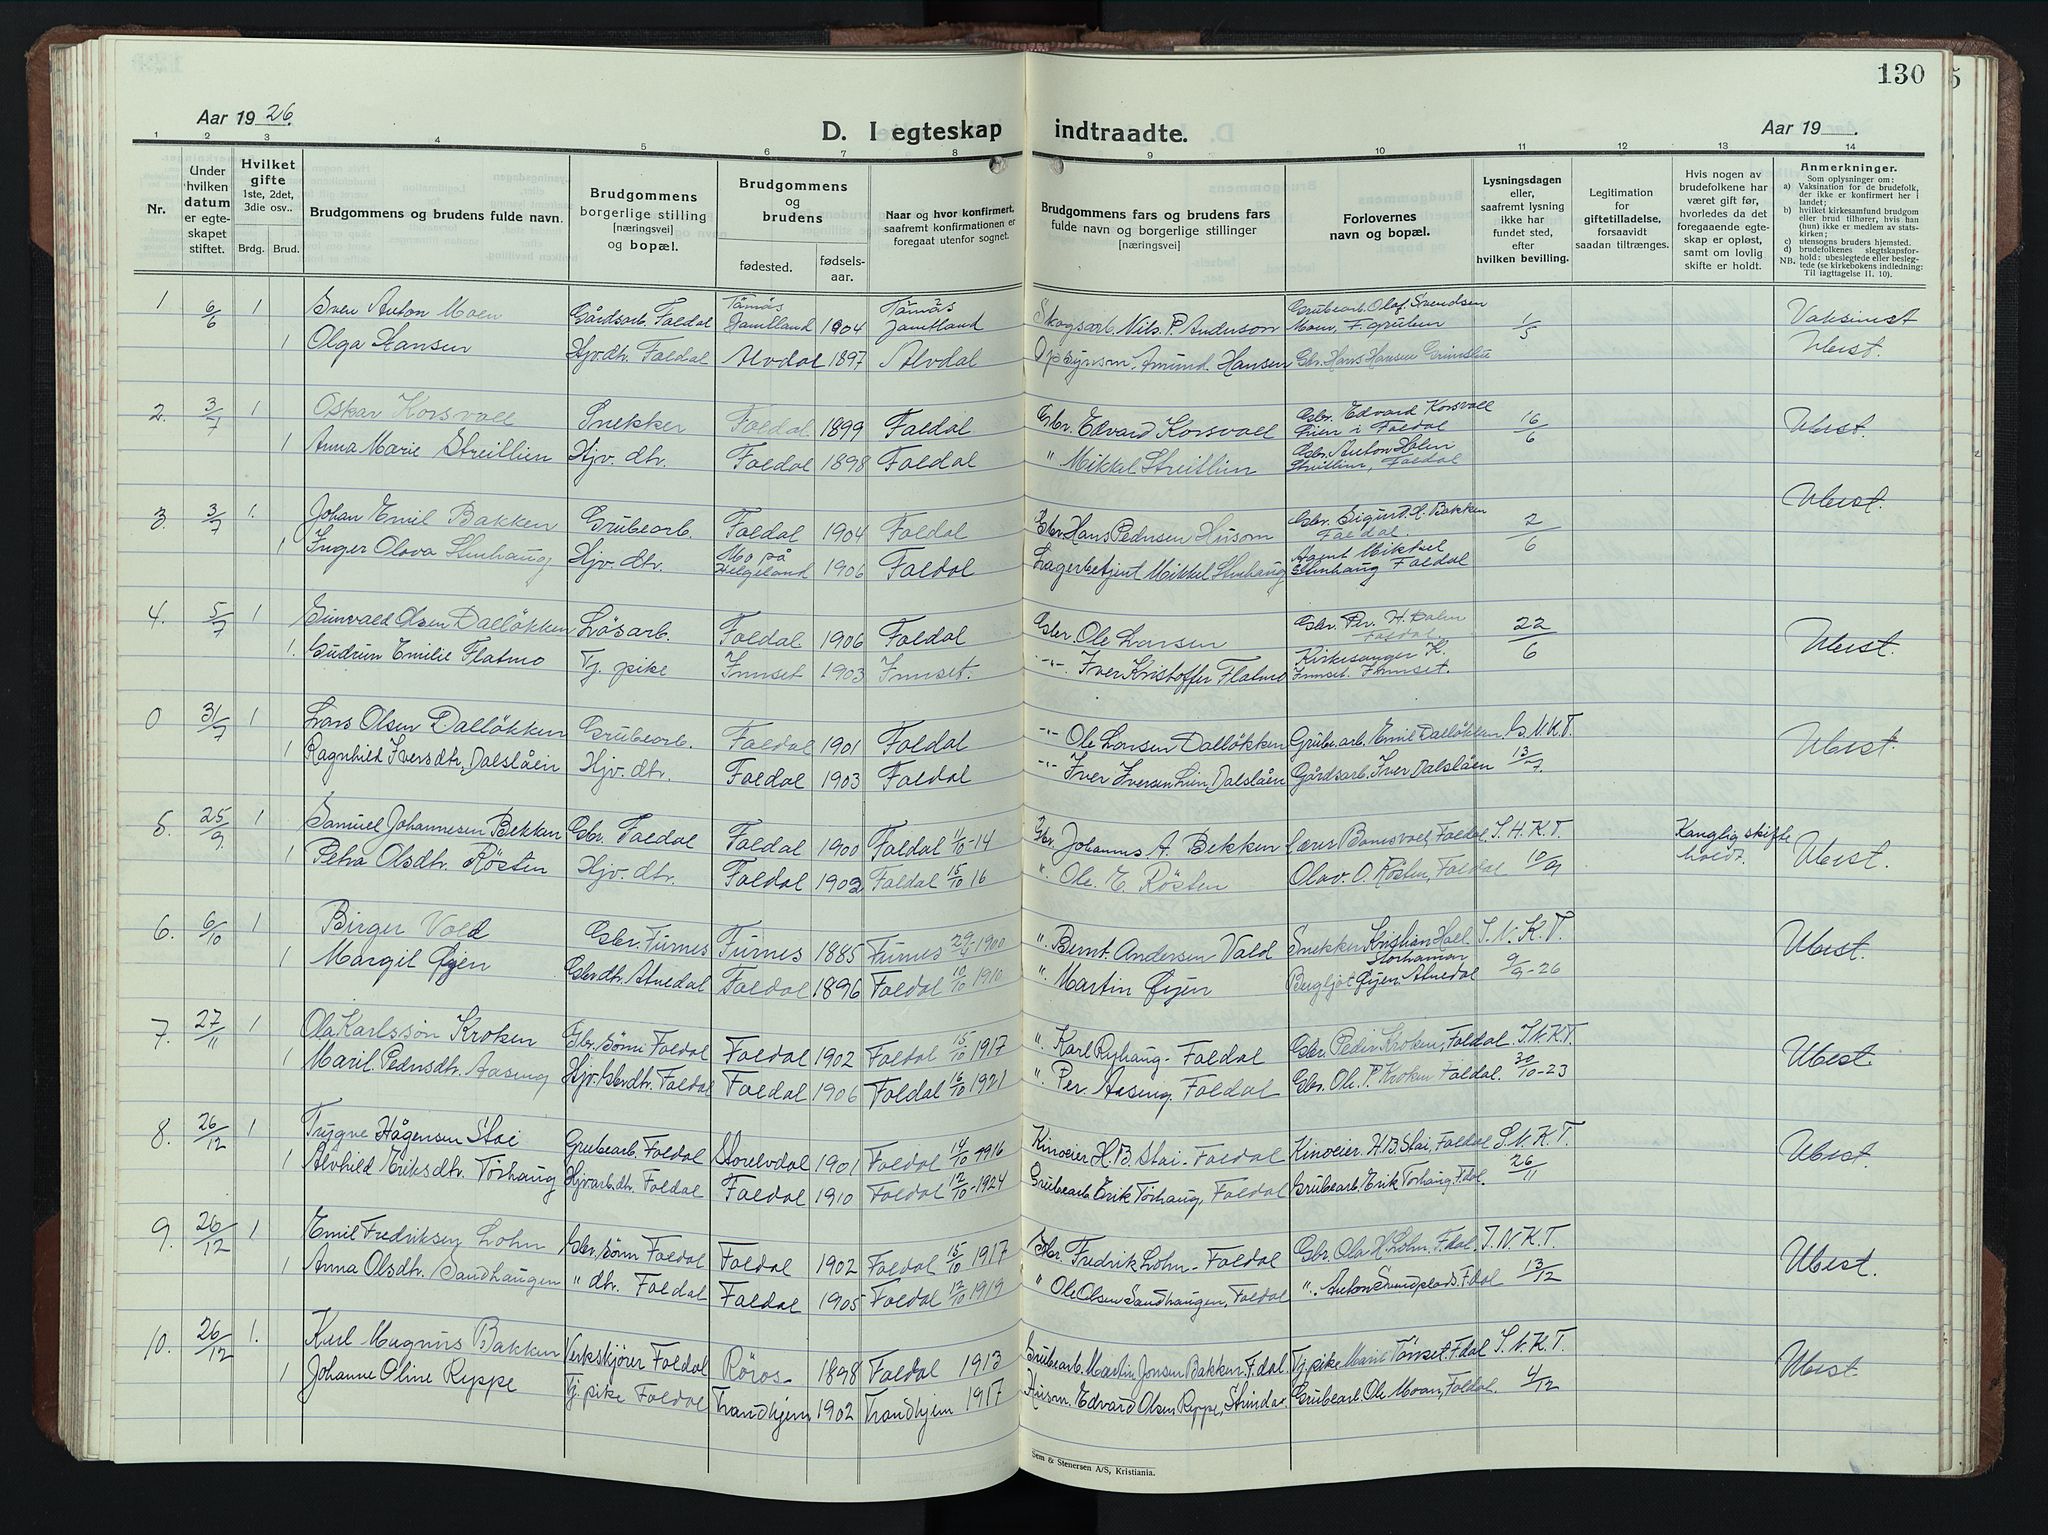 130
Aar 1926
D. I egteskap indtraadte.
Aar 19 .
1 2 3 4 5 6 7 8 9 10 11 12 13 14
Nr.
Under hvilken datum er egteskapet stiftet.
Hvilket gifte 1ste, 2det, 3die osv..
Brdg. Brud.
Brudgommens og brudens fulde navn.
Brudgommens borgerlige stilling [næringsvei] og bopæl.
Brudgommens og brudens
fødested.
fødselsaar.
Naar og hvor konfirmert, saafremt konfirmationen er foregaat utenfor sognet.
Brudgommens fars og brudens fars fulde navn og borgerlige stillinger [næringsvei]
Forlovernes navn og bopæl.
Lysningsdagen eller, saafremt lysning ikke har fundet sted, efter hvilken bevilling.
Legitimation for giftetilladelse, forsaavidt saadan tiltrænges.
Hvis nogen av brudefolkene har været gift før, hvorledes da det foregaaende egteskap er opløst, samt om lovlig skifte er holdt.
Anmerkninger.
Som oplysninger om:
a) Vaksination for de brudefolk, der ikke er konfirmert her i landet;
b) hvilket kirkesamfund brudgom eller brud tilhører, hvis han (hun) ikke er medlem av statskirken;
c) utensogns bruders hjemsted.
d) brudefolkenes slegtskapsforhold: ubeslegtede eller beslegtede (se kirkebokens indledning: Til iagttagelse II. 10).
NB.
1 6/6 1 Sven Anton Moen Gårdsarb. Foldal Tännäs Jämtland 1904 Tännäs Jämtland Skogsarb. Nils P. Anderson Grubearb. Olaf Svendsen Moen, F. gruben 1/5 Vaksinert
1 Olga Hansen Hjv. dtr. Foldal Alvdal 1897 Alvdal Opsynsm. Amund Hansen Gbr. Hans Hansen Ubest.
2. 3/7 1 Oskar Korsvold Snekker Foldal 1899 Foldal Gbr. Edvard Korsvold Gbr. Edvard Korsvold Lien i Foldal 16/6 Ubest.
1 Anna Marie Streitlien Hjv. dtr. Foldal 1898 Foldal " Mikkel Streitlien Gbr. Anton Holen Streitlien, Foldal
3. 3/7 1. Johan Emil Bakken Grubearb. Foldal 1904 Foldal Gbr. Hans Pedersen Husom Gbr. Sigurd H. Bakken Foldal. 2/6 Ubest.
1 Inger Olova Stenhaug Hjv. dtr. Mo på Helgeland 1906 Foldal Lagerbetjent Mikkel Stenhaug Agent Mikkel Stenhaug Foldal
4. 5/7 1 Gunvald Olsen Dalløkken Løsarb. Foldal 1906 Foldal Gbr. Ole Larsen Gbr. Per H. Dalen Foldal. 22/6 Ubest.
1. Gudrun Emilie Flatmo Tj. pike Innset 1903 Innset. -"- Iver Kristoffer Flatmo Kirkesanger K. Innset. Innset.
0 31/7 1 Lars Olsen Dalløkken Grubearb. Foldal 1901 Foldal -"- Ole Larsen Dalløkken Grubearb. Emil Dalløkken G. N. K. T. Ubest.
1 Ragnhild Iversdtr. Dalslåen Hjv. dtr. Foldal 1903 Foldal -"- Iver Iversen Lien, Dalslåen Gårdsarb. Iver Dalslåen 13/7
5. 25/9 1 Samuel Johannesen Bekken Gbr. Foldal Foldal 1900 Foldal 11/10-14 Gbr. Johannes A. Bekken Foldal I. H. K. T. Kanglig skifte holdt. Ubest.
1 Petra Olsdtr. Røsten Hjv. dtr. Foldal 1902 Foldal 15/10 16 " Ole E. Røsten Olav O. Røsten, Foldal 10/9
6. 6/10 1 Birger Vold Gbr. Furnes Furnes 1885 Furnes 29/4-1900 " Bernt Andersen Vald Snekker Kristian Hoel Storhamar I. N. K. T. Ubest.
1 Margit Øyen Gbrdtr. Atnedal Foldal 1896 Foldal 10/10 1910 " Martin Øyen Bergljot Øyen, Atnedal 9/9-26
7. 27/11 1 Ola Karlssøn Kroken Gbr. sønn Foldal Foldal 1902 Foldal 15/10 1917 " Karl Ryhaug - Foldal Gbr. Peder Kroken, Foldal. I. N. K. T. Ubest.
1 Marit Pedersdtr. Aaseng Hjv. Gbrdtr. Foldal Foldal 1906 Foldal 16/10 1921 " Per. Aaseng. Foldal Gbr. Ole P. Kroken Foldal. 30/10-23
8. 26/12 1 Trygve Hågensen Stai Grubearb. Foldal Storelvdal 1901 Foldal 14/10 1916 Kinoeier H. B. Stai - Foldal Kinoeier. H. B. Stai, Foldal I. N. K. T. Ubest.
1 Alvhild Eriksdtr. Tørhaug Hjv. arb. dtr. Foldal Foldal 1910 Foldal 12/10-1924 Grubearb. Erik Tørhaug, Foldal Grubearb. Erik Tørhaug, F.dal. 26/11
9. 26/12 1 Emil Fredriksen Lohn Gbr. sønn Foldal Foldal 1902 Foldal 15/10 1917 Gbr. Fredrik Lohn - Foldal Gbr. Ola H. Lohn. F.dal. I. N. K. T. Ubest.
1 Anna Olsdtr. Sandhaugen " dtr. Foldal Foldal 1905 Foldal 12/10 1919 " Ole Olsen Sandhaugen, Foldal ". Anton F.dal 13/12
10. 26/12 1. Karl Magnus Bakken Verkskjører Foldal Røros- 1898 Foldal 1913 Grubearb. Martin Jonsen Bakken. F.dal. Tj. pike Marit Tønset. F.dal I. N. K. T. Ubest.
1 Johanne Oline Reppe Tj. pike Foldal Trondhjem 1902 Trondhjem 1917 Husm. Edvard Olsen Reppe, Strinda. Grubearb. Ole Moan, Foldal. 4/12
Sem & Stenersen A/S, Kristiania.